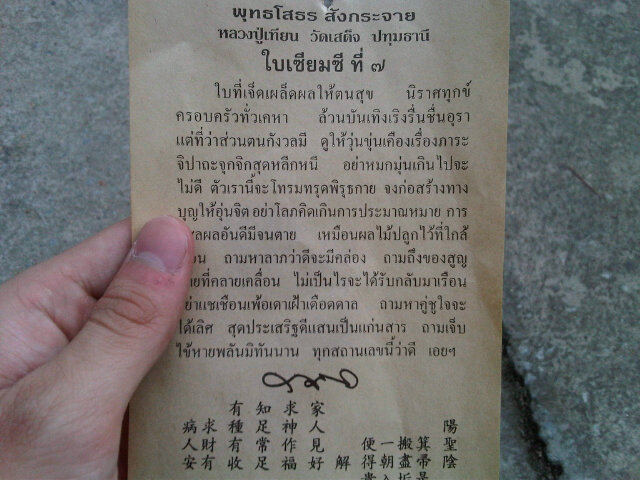 พุทธโสธร สังกระจาย
หลวงปู่เทียน วัดเสด็จ ปทุมธานี
ใบเซียมซี ที่ ๗
ใบที่เจ็ดเผล็ดผลให้ตนสุข นิราศทุกข์
ครอบครัวทั่วเคหา ล้วนบันเทิงเริงรื่นชื่นอุรา
แต่ที่ว่าส่วนตนกังวลมี ดูให้วุ่นขุ่นเคืองเรื่องภาระ
จิปาถะจุกจิกสุดหลีกหนี อย่าหมกมุ่นเกินไปจะ
ไม่ดี ตัวเรานี้จะโทรมทรุดพิรุธกาย จงก่อสร้างทาง
บุญให้อุ่นจิต อย่าโลภคิดเกินการประมาณหมาย การ
ผลอันดีมีจนตาย เหมือนผลไม้ปลูกไว้ที่ใกล้
ถามหาลาภว่าดีจะมีคล่อง ถามถึงของสูญ
ที่คลายเคลื่อน ไม่เป็นไรจะได้รับกลับมาเรือน
แชเชือนเพ้อเดาเฝ้าเดือดดาล ถามหาคู่ชูใจจะ
ได้เลิศ สุดประเสริฐดีแสนเป็นแก่นสาร ถามเจ็บ
ไข้หายพลันมิทันนาน ทุกสถานเลขนี้ว่าดี เอยฯ
有知求家
病求種足神人 陽
人財有常作見 便一搬箕聖
安有收足福好解 得朝盡帚陰